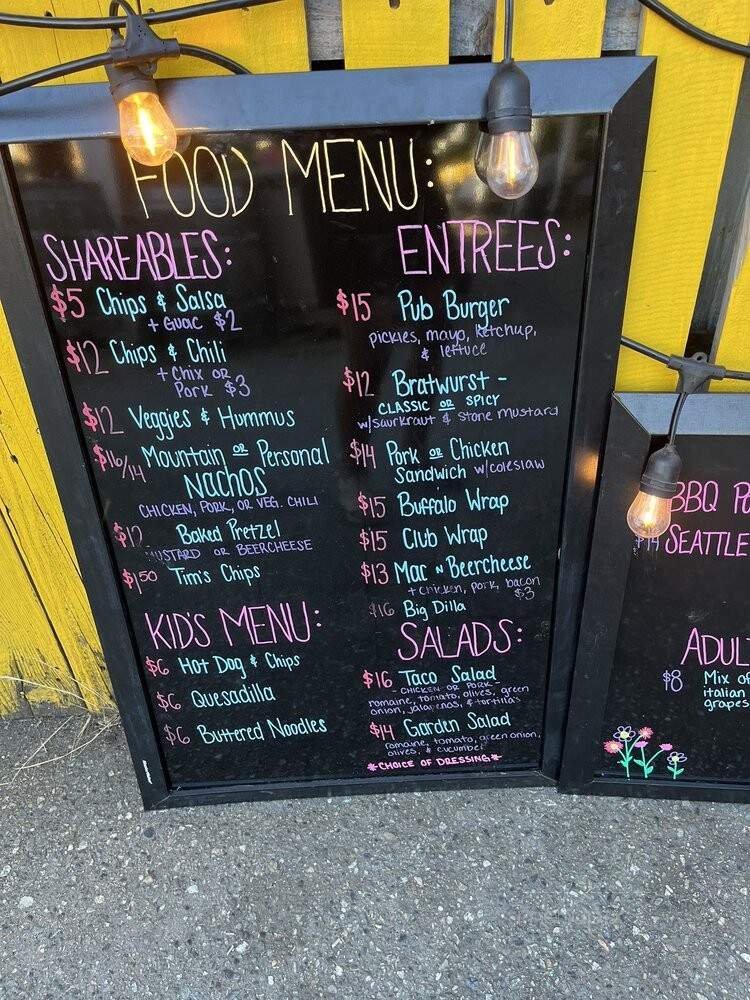 FOOD MENU:
SHAREABLES:
$5 Chips & Salsa
+ Guac $2
$12 Chips & Chili
+ Chix OR
Pork $3
$12 Veggies & Hummus
$16/14 Mountain OR Personal
Nachos
CHICKEN, PORK, OR VEG. CHILI
$12 Baked Pretzel
MUSTARD OR BEERCHEESE
$1.50 Tim's Chips
KID'S MENU:
$6 Hot Dog & Chips
$6 Quesadilla
$6 Buttered Noodles
ENTREES:
$15 Pub Burger
pickles, mayo, ketchup,
& lettuce
$12 Bratwurst -
CLASSIC OR SPICY
w/saurkraut & Stone Mustard
$14 Pork OR Chicken
Sandwich w/coleslaw
$15 Buffalo Wrap
$15 Club Wrap
$13 Mac N Beercheese
+ chicken, pork, bacon
$3
$16 Big Dilla
SALADS:
$16 Taco Salad
- CHICKEN OR PORK -
romaine, tomato, olives, green
onion, jalapenos, & tortillas
$14 Garden Salad
romaine, tomato, green onion,
olives, & cucumber
*CHOICE OF DRESSING*
BBQ
$14 SEATTLE
$8 Mix of
italian
grapes